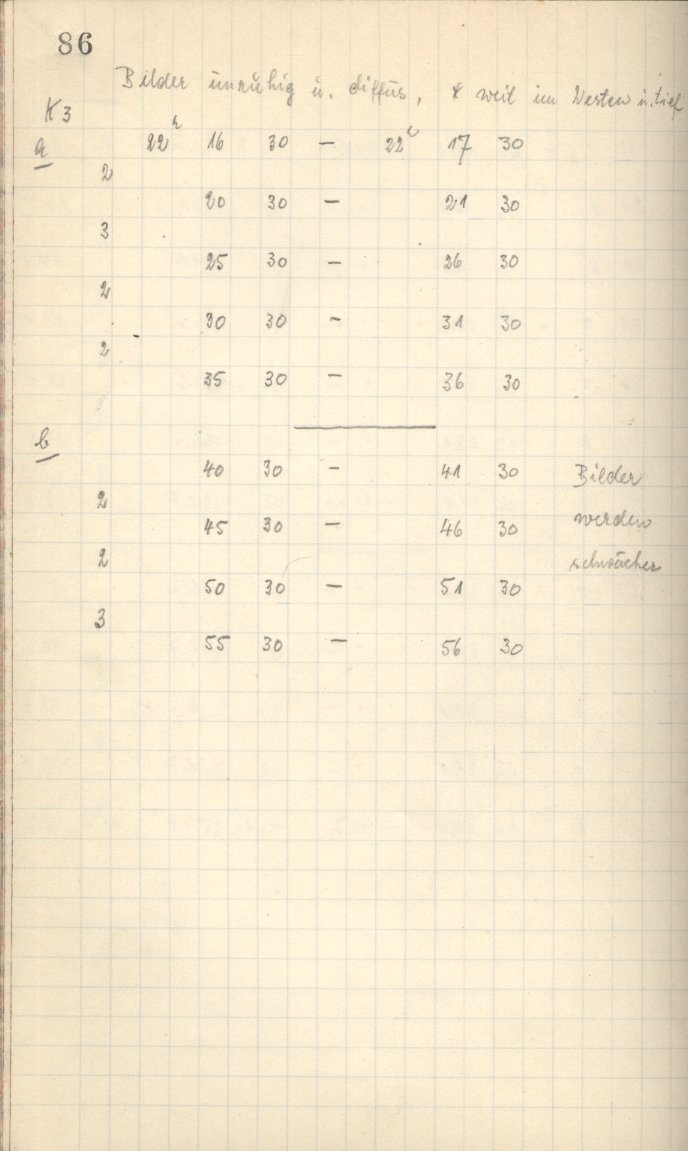 86
Bilder unruhig u. diffus, weil im Westen u. tief
K3
a 22h 16 30 — 22h 17 30
2
20 30 — 21 30
3
25 30 — 26 30
2
30 30 — 31 30
2
35 30 — 36 30
b
40 30 — 41 30 Bilder
2
45 30 — 46 30 werden
2
schwächer
50 30 — 51 30
3
55 30 — 56 30